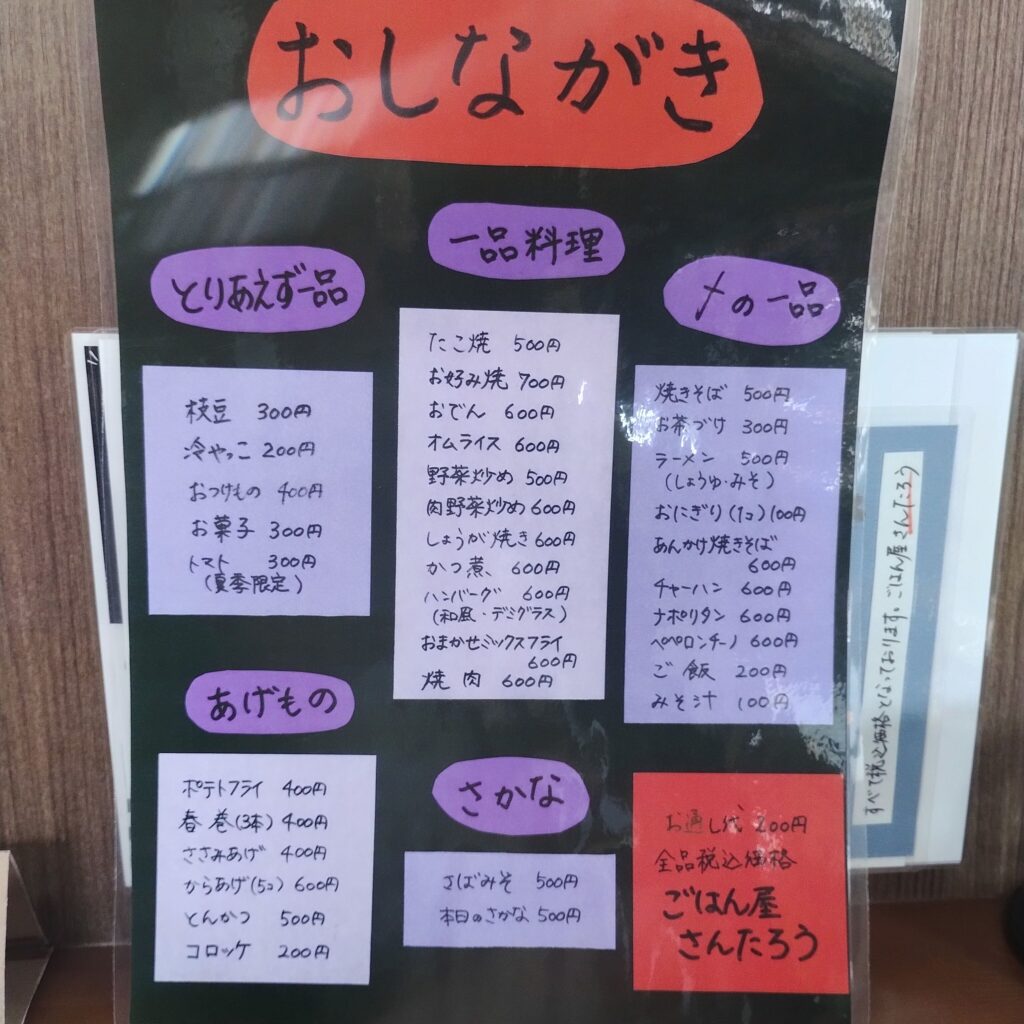 おしながき
とりあえず一品
枝豆 300円
冷やっこ 200円
おつけもの 400円
お菓子 300円
トマト 300円
(夏季限定)
あげもの
ポテトフライ 400円
春巻(3本) 400円
ささみあげ 400円
からあげ(5コ) 600円
とんかつ 500円
コロッケ 200円
一品料理
たこ焼 500円
お好み焼 700円
おでん 600円
オムライス 600円
野菜炒め 500円
肉野菜炒め 600円
しょうが焼き 600円
かつ煮 600円
ハンバーグ 600円
(和風・デミグラス)
おまかせミックスフライ
600円
焼肉 600円
さかな
さばみそ 500円
本日のさかな 500円
〆の一品
焼きそば 500円
お茶づけ 300円
ラーメン 500円
(しょうゆ・みそ)
おにぎり(1コ) 100円
あんかけ焼きそば
600円
チャーハン 600円
ナポリタン 600円
ペペロンチーノ 600円
ご飯 200円
みそ汁 100円
お通し代 200円
全品税込価格
ごはん屋
さんたろう
すべて税込価格となっております。ごはん屋さんたろう